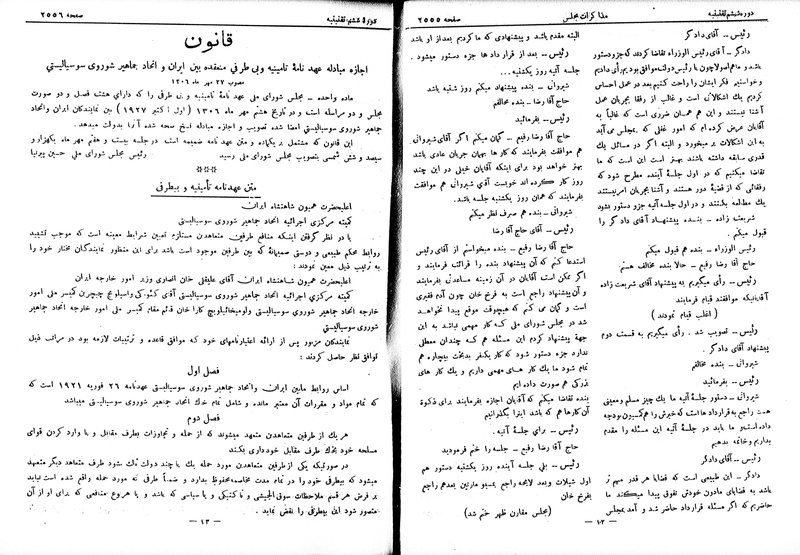 دوره ششم تقنینیه مذاکرات مجلس صفحه ۲۵۵۵
رئیس ــ آقای دادگر
دادگر ــ آقای رئیس الوزراء تقاضا کردند که جزو دستور
باشد و ما هم اصولا چون با رئیس دولت موافق بودیم رأی دادیم
و خواستیم فکر ایشان را راحت کنیم بعد در عمل احساس
کردیم یك اشکالاتی است و غالب از رفقا بجریان عمل
آشنا نیستند و این هم همان ضرری است که غالباً به
آقایان عرض کرده ام که امور عملی که بمجلس می آید
به این اشکالات بر میخورد و البته اگر در مسائل یك
قدری سابقه داشته باشند بهتر است این است که ما
تقاضا میکنیم که در اول جلسهٔ آینده مطرح شود که
رفقائی که از قضیهٔ دور هستند و آشنا بجریان امر نیستند
یك مطالعه بکنند و در اول جلسه آتیه جزو دستور بشود
شریعت زاده ــ بنده پیشنهاد آقای دادگر را
قبول میکنم .
رئیس الوزراء ــ بنده هم قبول میکنم
حاج آقا رضا رفیع ــ حالا بنده مخالف هستم.
رئیس ــ رأی میگیریم به پیشنهاد آقای شریعت زاده
آقایانیکه موافقند قیام فرمایند
( اغلب قیام نمودند )
رئیس ــ تصویب شد . رأی میگیریم به قسمت دوم
پیشنهاد آقای دادگر .
شیروانی ــ بنده مخالفم
رئیس ــ بفرمائید
شیروانی ــ دستور جلسهٔ آتیه ما یك چیز مسلم و معینی
راجع به قرارداد ها است که خبرش را هم کمسیون بودجه
داده است ما باید در جلسهٔ آتیه این مسئله را مقدم
بداریم و خاتمه بدهیم
رئیس ــ آقای دادگر
دادگر ــ این طبیعی است که قضایا هر قدر مهم تر
باشد به قضایای مادون خودش تفوق پیدا میکند ما
حاضریم که اگر مسئله قرارداد حاضر شد و آمد بمجلس
البته مقدم باشد و پیشنهادی که ما کردیم بعد از او باشد
رئیس ــ بعد از قرارداد ها جزء دستور میشود .
جلسه آتیه روز یکشنبه ...
حاج آقا رضا ــ بنده پیشنهاد میکنم روز شنبه باشد
شیروانی ــ بنده مخالفم
رئیس ــ بفرمائید
حاج آقا رضا رفیع ــ گمان میکنم اگر آقای شیروانی
هم موافقت بفرمایند که کار ها بهمان جریان عادی باشد
بهتر خواهد بود برای اینکه آقایان خیلی در این چند
روز کار کرده اند خوبست آقای شیروانی هم موافقت
بفرمایند که همان روز یکشنبه جلسه باشد.
شیروانی ــ بنده هم صرف نظر میکنم
رئیس ــ آقای حاج آقا رضا
حاج آقا رضا رفیع ــ بنده میخواستم از آقای رئیس
استدعا کنم که آن پیشنهاد بنده را قرائت فرمایند و
اگر ممکن است آقایان در آن زمینه مساعدتی بفرمایند
و آن پیشنهاد راجع است به فرخ خان چون آدم فقیری
است و گمان می کنم که هیچوقت موقع پیدا نخواهد
شد در مجلس شورای ملی کـه کار مهمی نباشد به این
جهة پیشنهاد کردم این مسئله هم کـه چندان معطلی
ندارد جزء دستور شود که کار یکنفر بدبخت بیچاره هم
تمام شود ما یك کار های مهمی داریم و یك کار های
بزرگی هم صورت داده ایم
تقاضا میکنم که آقایان اجازه بفرمایند برای ذکوة
آن کار ها هم که باشد اینرا بگذرانیم
رئیس ــ برای جلسهٔ آتیه .
حاج آقا رضا رفیع ــ جلسه را ختم فرمودید
رئیس ــ بلی جلسه آینده روز یکشنبه دستور هم
اول شیلات و بعد لایحه راجع بسیو مارتین بعد هم راجع
بفرخ خان
(مجلس مقارن ظهر ختم شد)
ــ ۱۲ ــ
دوره ششم تقنینیه صفحه ۲۵۵۶
قانون
اجازه مبادله عهد نامهٔ تامینیه و بی طرفی منعقده بین ایران و اتحاد جماهیر شوروی سوسیالیستی
مصوب ۲۷ مهر ماه ۱۳۰۶
ماده واحده ــ مجلس شورای ملی عهد نامهٔ تامینیه و بی طرفی را که دارای هشت فصل و دو صورت
مجلس و دو مراسله است و در تاریخ هشتم مهر ماه ۱۳۰۶ ( اول اکتبر ۱۹۲۷ ) بین نمایندگان ایران و اتحاد
جماهیر شوروی سوسیالیستی امضا شده تصویب و اجازه مبادله نسخ صحه شده آنرا بدولت میدهد.
این قانون که مشتمل بر یکماده و متن عهد نامه ضمیمه است در جلسه بیست و هفتم مهر ماه یکهزار و
سیصد و شش شمسی بتصویب مجلس شورای ملی رسید رئیس مجلس شورای ملی حسین پیرنیا
***
متن عهدنامه تأمینیه و بیطرفی
اعلیحضرت همیون شاهنشاه ایران
کمیته مرکزی اجرائیه اتحاد جماهیر شوروی سوسیالیستی
با در نظر گرفتن اینکه منافع طرفین متعاهدین مستلزم تعیین شرایط معینه است که موجب تشیید
روابط محکم طبیعی و دوستی صمیمانهٔ که بین طرفین موجود است باشد برای این منظور نمایندگان مختار خود را
به ترتیب ذیل معین نمودند :
اعلیحضرت همیون شاهنشاه ایران آقای علیقلی خان انصاری وزیر امور خارجه ایران
کمیته مرکزی اجرائیه اتحاد جماهیر شوروی سوسیالیستی آقای گئورگی واسیلویچ چیچرین کمیسر ملی امور
خارجه اتحاد جماهیر شوروی سوسیالیستی ولومیخائیلوویچ کارا خان قائم مقام کمیسر ملی امور خارجه اتحاد جماهیر
شوروی سوسیالیستی
نمایندگان مزبور پس از ارائه اعتبارنامهای خود که موافق قاعده و ترتیبات لازمه بود در مراتب ذیل
توافق نظر حاصل کردند :
فصل اول
اساس روابط مابین ایران و اتحاد جماهیر شوروی سوسیالیستی عهدنامه ۲۶ فوریه ۱۹۲۱ است که
تمام مواد و مقررات آن معتبر مانده و شامل تمام خاك اتحاد جماهیر شوروی سوسیالیستی میباشد
فصل دوم
هر یك از طرفین متعاهدین متعهد میشوند که از حمله و تجاوزات بطرف مقابل و یا وارد کردن قوای
مسلحه خود بخاك طرف مقابل خودداری بکند
در صورتیکه یکی از طرفین متعاهدین مورد حمله یك یا چند دولت ثالث شود طرف متعاهد دیگر متعهد
میشود که بیطرفی خود را در تمام مدت مخاصمه محفوظ بدارد و ضمناً طرفی که مورد حمله واقع شده است نباید
بر فرض هر قسم ملاحظات سوق الجیشی و تاکتیکی و یا سیاسی که باشد و یا هر نوع منافعی که برای او از آن
متصور شود این بیطرفی را نقض نماید .
ــ ۱۳ ــ